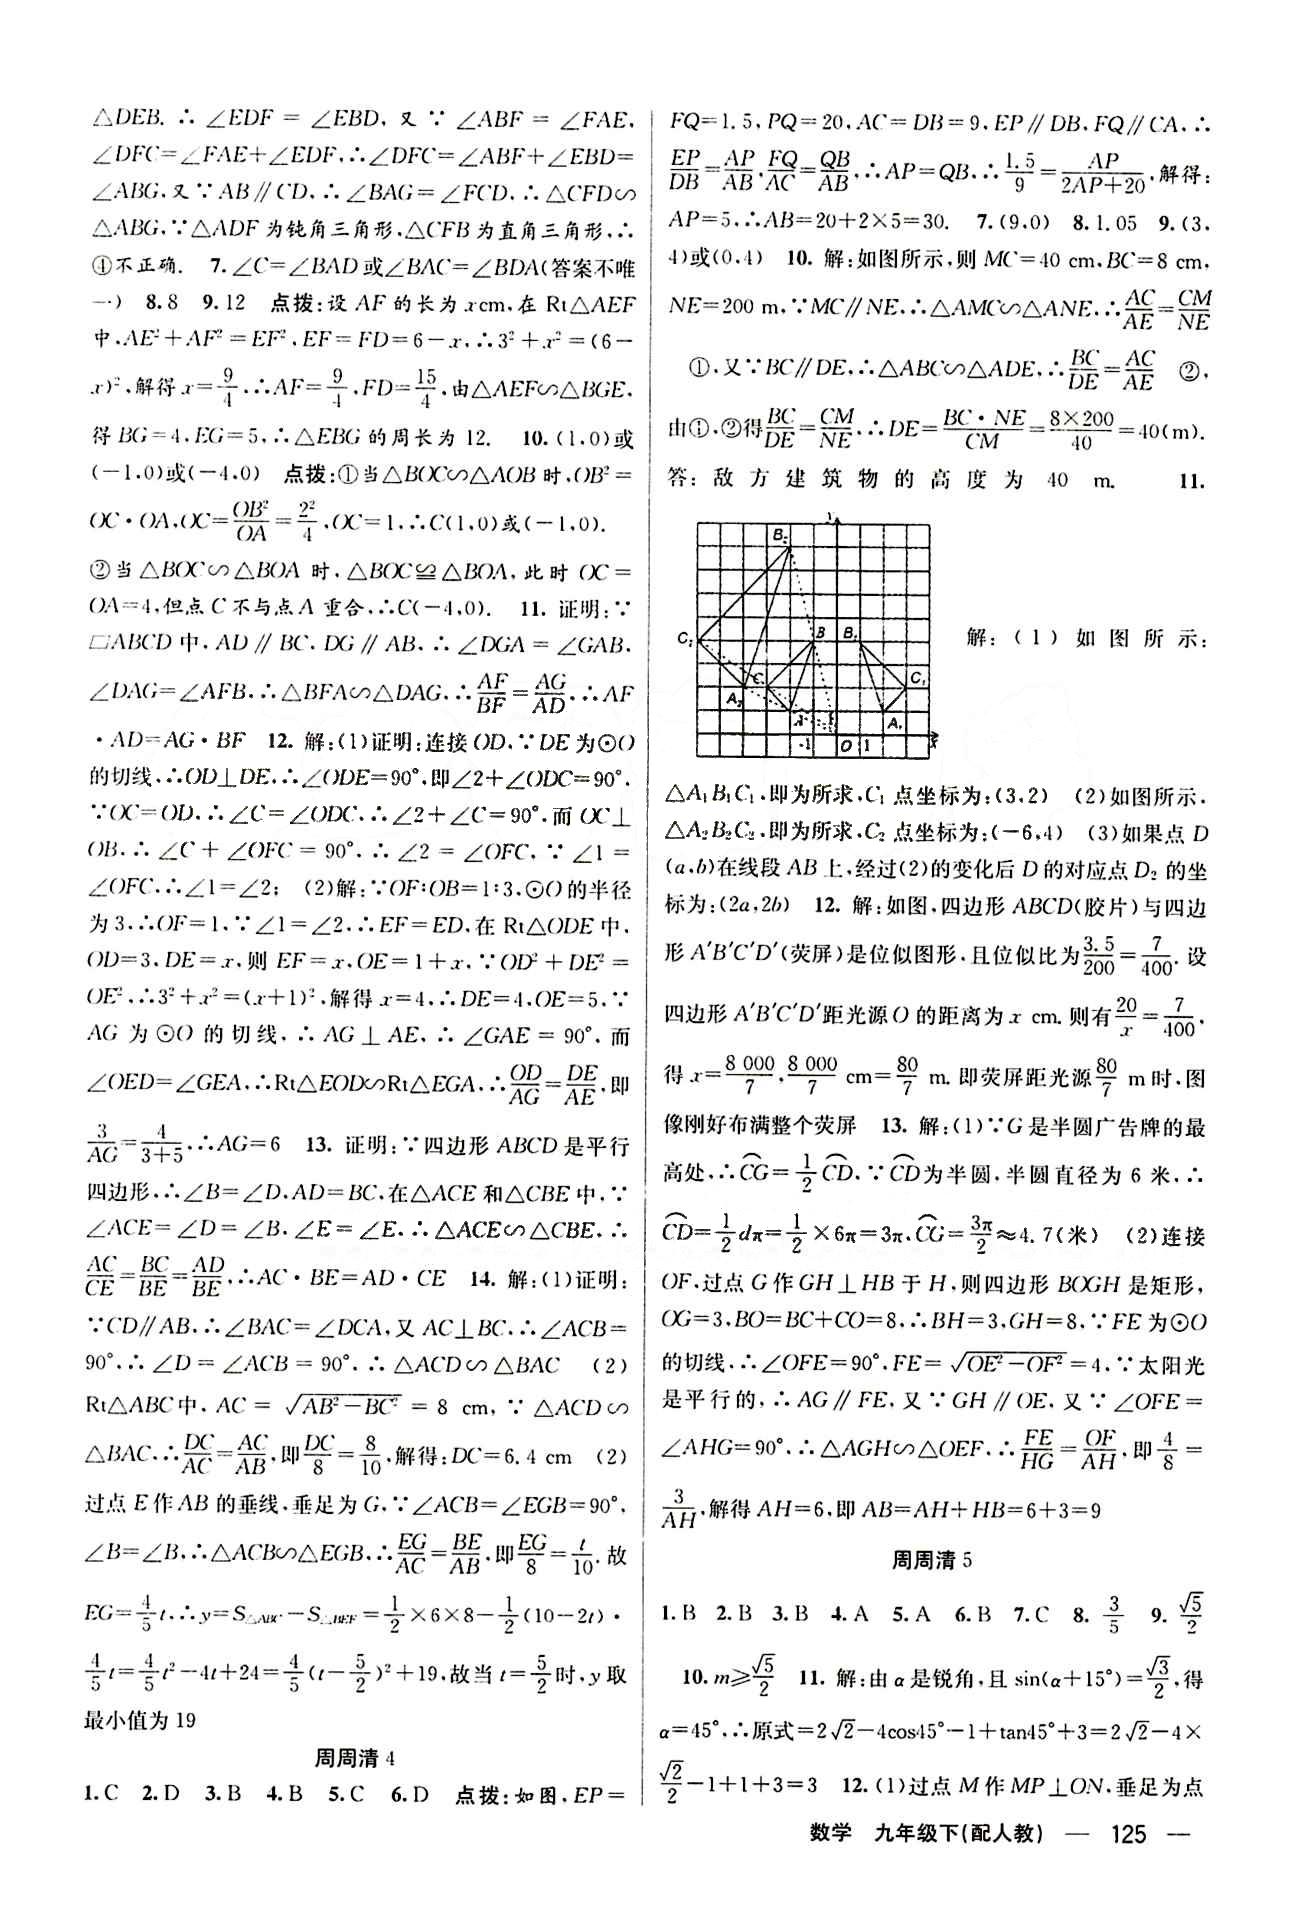 △DEB. ∴ ∠EDF = ∠EBD, 又 ∵ ∠ABF = ∠FAE,
∠DFC=∠FAE+∠EDF,∴∠DFC=∠ABF+∠EBD=
∠ABG,又∵AB∥CD,∴∠BAG=∠FCD,∴△CFD∽
△ABG,∵△ADF为钝角三角形,△CFB为直角三角形,∴
④不正确. 7.∠C=∠BAD或∠BAC=∠BDA(答案不唯
一) 8.8 9.12 点拨:设AF的长为xcm,在Rt△AEF
中,AE²+AF²=EF²,EF=FD=6-x,∴3²+x²=(6-
x)²,解得x=9/4,∴AF=9/4,FD=15/4,由△AEF∽△BGE,
得BG=4,EG=5,∴△EBG的周长为12. 10.(1,0)或
(-1,0)或(-4,0) 点拨:①当△BOC∽△AOB时,OB²=
OC·OA,OC=OB²/OA=2²/4,OC=1,∴C(1,0)或(-1,0).
②当△BOC∽△BOA时,△BOC≌△BOA,此时OC=
OA=4,但点C不与点A重合,∴C(-4,0). 11. 证明:∵
□ABCD中,AD∥BC,DG∥AB,∴∠DGA=∠GAB,
∠DAG=∠AFB,∴△BFA∽△DAG,∴AF/BF=AG/AD,∴AF
·AD=AG·BF 12. 解:(1)证明:连接OD,∵DE为⊙O
的切线,∴OD⊥DE,∴∠ODE=90°,即∠2+∠ODC=90°,
∵OC=OD,∴∠C=∠ODC,∴∠2+∠C=90°,而OC⊥
OB,∴∠C+∠OFC=90°,∴∠2=∠OFC,∵∠1=
∠OFC,∴∠1=∠2; (2)解:∵OF∶OB=1∶3,⊙O的半径
为3,∴OF=1,∵∠1=∠2,∴EF=ED,在Rt△ODE中,
OD=3,DE=x,则EF=x,OE=1+x,∵OD²+DE²=
OE²,∴3²+x²=(x+1)²,解得x=4,∴DE=4,OE=5,∵
AG为⊙O的切线,∴AG⊥AE,∴∠GAE=90°,而
∠OED=∠GEA,∴Rt△EOD∽Rt△EGA,∴OD/AG=DE/AE,即
3/AG=4/(3+5),∴AG=6 13. 证明:∵四边形ABCD是平行
四边形,∴∠B=∠D,AD=BC,在△ACE和△CBE中,∵
∠ACE=∠D=∠B,∠E=∠E,∴△ACE∽△CBE,∴
AC/CE=BC/BE=AD/BE,∴AC·BE=AD·CE 14. 解:(1)证明:
∵CD∥AB,∴∠BAC=∠DCA,又AC⊥BC,∴∠ACB=
90°,∴∠D=∠ACB=90°,∴△ACD∽△BAC (2)
Rt△ABC中,AC=√(AB²-BC²)=8 cm,∵△ACD∽
△BAC,∴DC/AC=AC/AB,即DC/8=8/10,解得:DC=6.4 cm (2)
过点E作AB的垂线,垂足为G,∵∠ACB=∠EGB=90°,
∠B=∠B,∴△ACB∽△EGB,∴EG/AC=BE/AB,即EG/8=t/10.故
EG=4/5t,∴y=S△ABC-S△BEF=1/2×6×8-1/2(10-2t)·
4/5t=4/5t²-4t+24=4/5(t-5/2)²+19,故当t=5/2时,y取
最小值为19
周周清4
1.C 2.D 3.B 4.B 5.C 6.D 点拨:如图,EP=
FQ=1.5,PQ=20,AC=DB=9,EP∥DB,FQ∥CA,∴
EP/DB=AP/AB,FQ/AC=QB/AB,∴AP=QB,∴1.5/9=AP/(2AP+20),解得:
AP=5,∴AB=20+2×5=30. 7.(9,0) 8.1.05 9.(3,
4)或(0,4) 10. 解:如图所示,则MC=40 cm,BC=8 cm,
NE=200 m,∵MC∥NE,∴△AMC∽△ANE,∴AC/AE=CM/NE
①,又∵BC∥DE,∴△ABC∽△ADE,∴BC/DE=AC/AE ②,
由①,②得BC/DE=CM/NE,∴DE=BC·NE/CM=8×200/40=40(m).
答:敌方建筑物的高度为 40 m. 11.
y
B₂
C₂ B B₁
C C₁
A₂ A A₁
-1 O 1 x
解:(1)如图所示:
△A₁B₁C₁,即为所求,C₁点坐标为:(3,2) (2)如图所示,
△A₂B₂C₂,即为所求,C₂点坐标为:(-6,4) (3)如果点D
(a,b)在线段AB上,经过(2)的变化后D的对应点D₂的坐
标为:(2a,2b) 12. 解:如图,四边形ABCD(胶片)与四边
形A′B′C′D′(荧屏)是位似图形,且位似比为3.5/200=7/400.设
四边形A′B′C′D′距光源O的距离为x cm.则有20/x=7/400,
得x=8 000/7,8 000/7 cm=80/7 m.即荧屏距光源80/7 m时,图
像刚好布满整个荧屏 13. 解:(1)∵G是半圆广告牌的最
高处,∴⌒CG=1/2⌒CD,∵⌒CD为半圆,半圆直径为6米,∴
⌒CD=1/2dπ=1/2×6π=3π,⌒CG=3π/2≈4.7(米) (2)连接
OF,过点G作GH⊥HB于H,则四边形BOGH是矩形,
OG=3,BO=BC+CO=8,∴BH=3,GH=8,∵FE为⊙O
的切线,∴∠OFE=90°,FE=√(OE²-OF²)=4,∵太阳光
是平行的,∴AG∥FE,又∵GH∥OE,又∵∠OFE=
∠AHG=90°,∴△AGH∽△OEF,∴FE/HG=OF/AH,即4/8=
3/AH,解得AH=6,即AB=AH+HB=6+3=9
周周清5
1.B 2.B 3.B 4.A 5.A 6.B 7.C 8.3/5 9.√5/2
10.m≥√5/2 11. 解:由α是锐角,且sin(α+15°)=√3/2,得
α=45°,∴原式=2√2-4cos45°-1+tan45°+3=2√2-4×
√2/2-1+1+3=3 12.(1)过点M作MP⊥ON,垂足为点
数学 九年级下(配人教) — 125 —